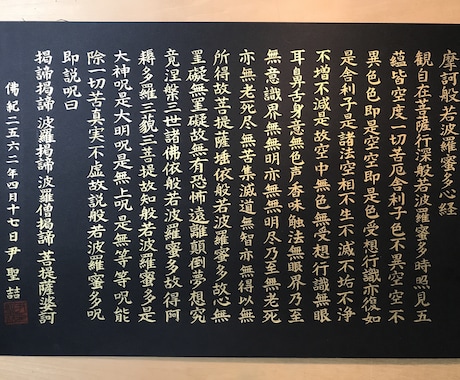 摩訶般若波羅蜜多心経
観自在菩薩行深般若波羅蜜多時照見五
蘊皆空度一切苦厄舎利子色不異空空不
異色色即是空空即是色受想行識亦復如
是舎利子是諸法空相不生不滅不垢不浄
不増不減是故空中無色無受想行識無眼
耳鼻舌身意無色声香味触法無眼界乃至
無意識界無無明亦無無明尽乃至無老死
亦無老死尽無苦集滅道無智亦無得以無
所得故菩提薩埵依般若波羅蜜多故心無
罣礙無罣礙故無有恐怖遠離顛倒夢想究
竟涅槃三世諸佛依般若波羅蜜多故得阿
耨多羅三藐三菩提故知般若波羅蜜多是
大神呪是大明呪是無上呪是無等等呪能
除一切苦真実不虚故説般若波羅蜜多呪
即説呪曰
揭諦揭諦 波羅揭諦 波羅僧揭諦 菩提薩婆訶
佛紀二五六二年四月十七日 尹聖喆